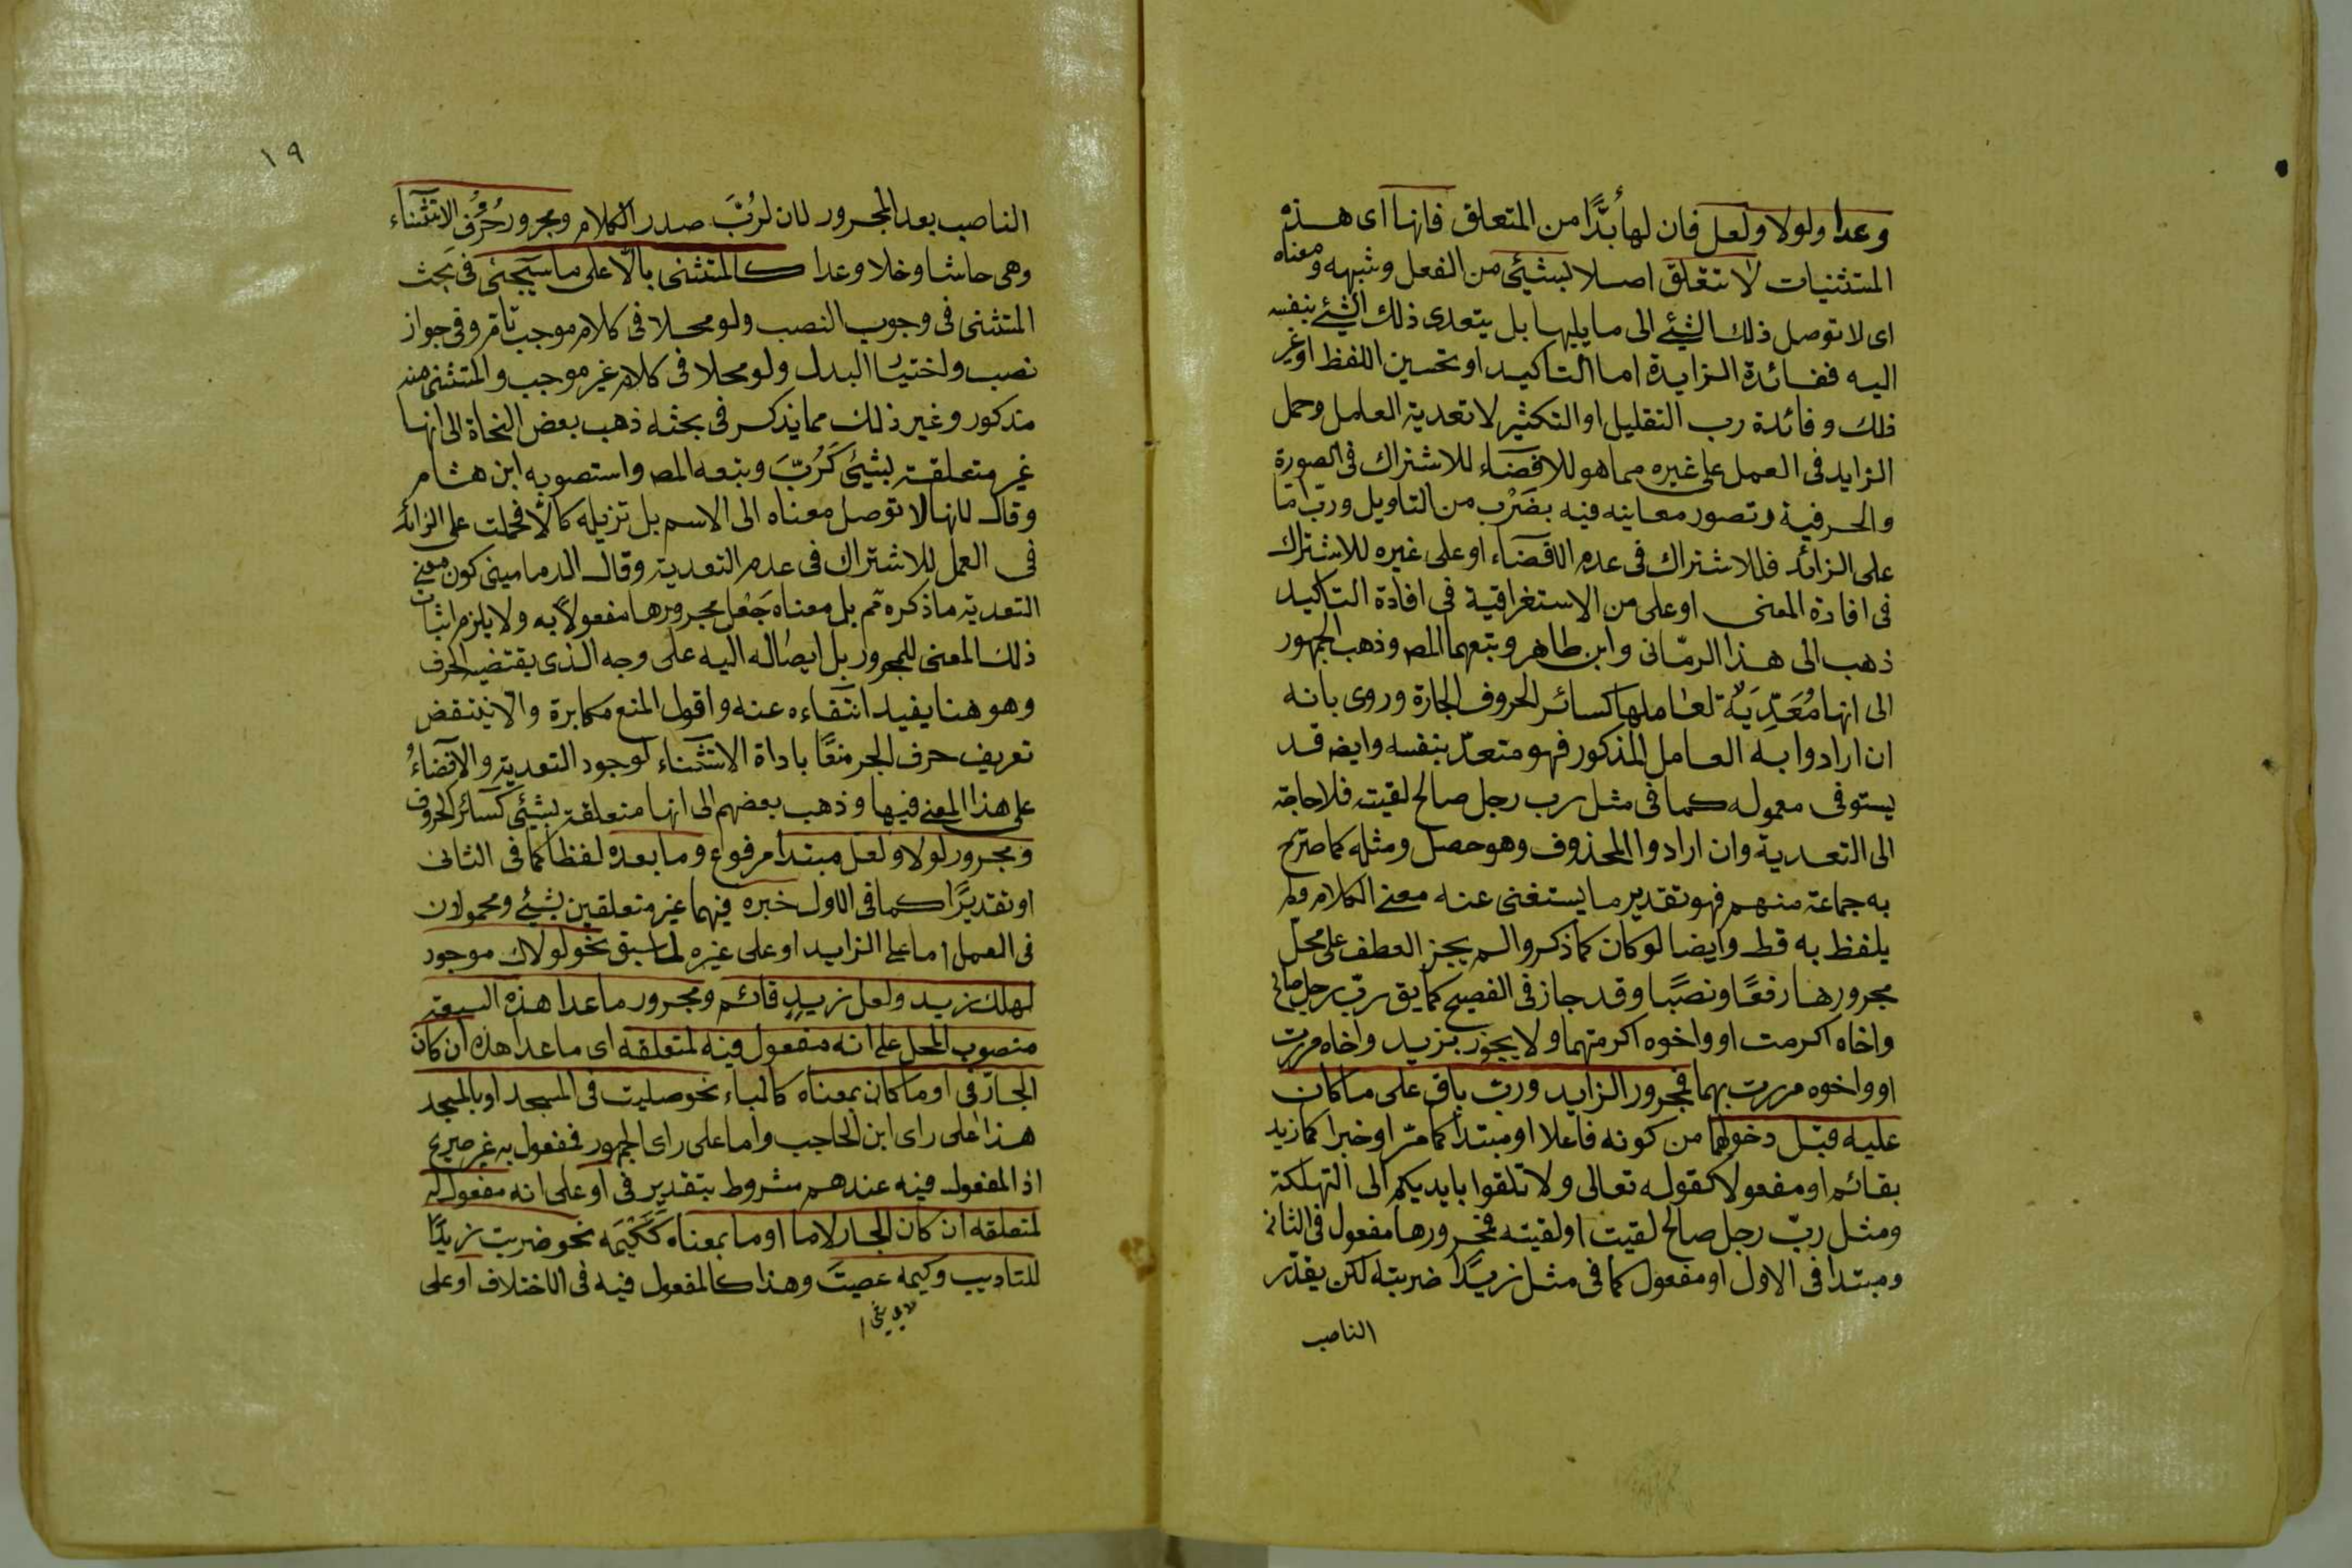 وعدا ولولا ولعل فان لها بُدًّا من المتعلق فانها اى هذه
المستثنيات لا تتعلق اصلا بشئ من الفعل وشبهه ومعناه
اى لا توصل ذلك الشئ الى ما يليها بل يتعدى ذلك الشئ بنفسه
اليه ففائدة الزايدة اما التاكيد او تحسين اللفظ او غير
ذلك وفائدة رب التقليل او التكثير لا تعدية العامل وحمل
الزايد فى العمل على غيره مما هو للافضاء للاشتراك فى الصورة
والحرفية وتصور معاينه فيه بضَرْب من التاويل ورب اما
على الزائد فللاشتراك فى عدم الافضاء او على غيره للاشتراك
فى افادة المعنى او على من الاستغراقية فى افادة التاكيد
ذهب الى هذا الرمّانى وابن طاهر وتبعهما المص وذهب الجمهور
الى انها مُعَدِّيَة لعاملها كسائر الحروف الجارة وروى بانه
ان ارادوا به العامل المذكور فهو متعدّ بنفسه وايضه قد
يستوفى معموله كما فى مثل رب رجل صالح لقيته فلا حاجة
الى التعدية وان ارادوا المحذوف وهو حصل ومثله كما صرّح
به جماعة منهم فهو تقدير ما يستغنى عنه معنى الكلام ولم
يلفظ به قط وايضا لو كان كما ذكروا لم يجز العطف على محلّ
مجرورها رفعًا ونصبًا وقد جاز فى الفصيح كما يق ربّ رجل صالح
واخاه اكرمت او واخوه اكرمتهما ولا يجوز بزيد واخاه مررت
او واخوه مررت بهما فمجرور الزايد ورب باق على ما كان
عليه قبل دخولهما من كونه فاعلا او مبتدا كما مرّ او خبرا كما زيد
بقائم او مفعولا كقوله تعالى ولا تلقوا بايديكم الى التهلكة
ومثل ربّ رجل صالح لقيت او لقيته فمجرورها مفعول فى الثانى
ومبتدا فى الاول او مفعول كما فى مثل زيدًا ضربته لكن يقدّر
الناصب
١٩
الناصب بعد المجرور لان لرُبّ صدر الكلام ومجرور حُرُف الاستثناء
وهى حاشا وخلا وعدا كالمستثنى بالّا على ما سيجئى فى بحث
المستثنى فى وجوب النصب ولو محلا فى كلام موجب تام وفى جواز
نصب واختيا البدل ولو محلا فى كلام غير موجب والمستثنى منه
مذكور وغير ذلك مما يذكر فى بحثه ذهب بعض النحاة الى انها
غير متعلقة بشئ كَرُبّ وتبعه المص واستصوبه ابن هشام
وقال لانها لا توصل معناه الى الاسم بل تزيله كالّا فحملت على الزائد
فى العمل للاشتراك فى عدم التعدية وقال الدمامينى كون معنى
التعدية ما ذكره ثم بل معناه جَعْل مجرورها مفعولاً به ولا يلزم اثبات
ذلك المعنى للمجرور بل ايصاله اليه على وجه الذى يقتضيه الحرف
وهو هنا يفيد انتفاءه عنه واقول المنع مكابرة والّا ينتقض
تعريف حرف الجر منعًا باداة الاستثناء لوجود التعدية والافضاءُ
على هذا المعنى فيها وذهب بعضهم الى انها متعلقة بشئ كسائر الحروف
ومجرور لولا ولعل مبتدا مرفوع وما بعده لفظا كما فى الثانى
او تقديرًا كما فى الاول خبره فيهما غير متعلقين بشئ ومحمولان
فى العمل اما على الزايد او على غيره لما سبق نحو لولاك موجود
لهلك زيد ولعل زيدٍ قائم ومجرور ما عدا هذه السبعة
منصوب المحل على انه مفعول فيه لمتعلقه اى ما عدا هذه ان كان
الجارّ فى او ما كان بمعناه كالباء نحو صليت فى المسجد او بالمسجد
هذا على راى ابن الحاجب واما على راى الجمهور فمفعول به غير صريح
اذ المفعول فيه عندهم مشروط بتقدير فى او على انه مفعول له
لمتعلقه ان كان الجار لاما او ما بمعناه كَكَيْمَه نحو ضربت زيدًا
للتاديب وكيمه عصيتَ وهذا كالمفعول فيه فى الاختلاف او على